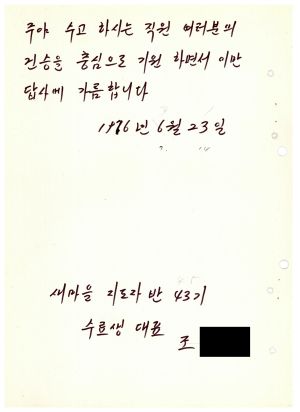 주야 수고 하시는 직원 여러분의
건승을 충심으로 기원 하면서 이만
답사에 가름합니다
1976년 6월 23일
새마을 지도자 반 43기
수료생 대표
조